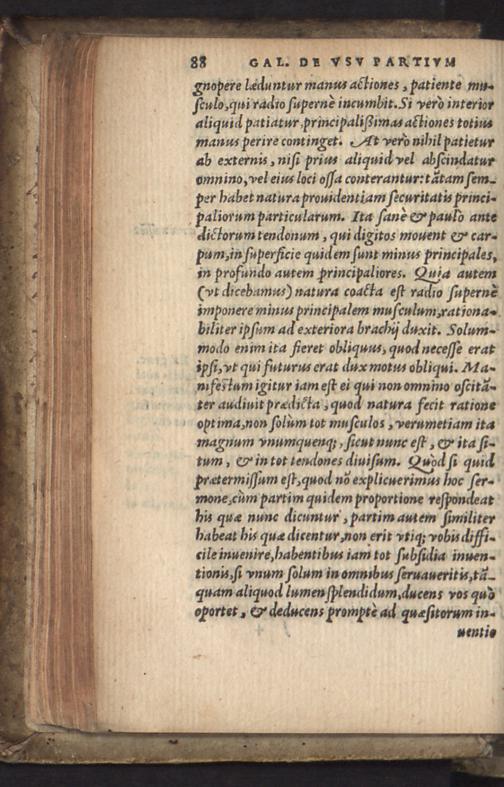 88 GAL. DE VSV PARTIVM
gnopere læduntur manus actiones, patiente mu-
ſculo, qui radio ſupernè incumbit. Si verò interior
aliquid patiatur, principalißimas actiones totius
manus perire continget. At verò nihil patietur
ab externis, niſi prius aliquid vel abſcindatur
omnino, vel eius loci oſſa conterantur: tãtam ſem-
per habet natura prouidentiam ſecuritatis princi-
paliorum particularum. Ita ſanè & paulo ante
dictorum tendonum, qui digitos mouent & car-
pum, in ſuperficie quidem ſunt minus principales,
in profundo autem principaliores. Quia autem
(vt dicebamus) natura coacta eſt radio ſupernè
imponere minus principalem muſculum, rationa-
biliter ipſum ad exteriora brachij duxit. Solum-
modo enim ita fieret obliquus, quod neceſſe erat
ipſi, vt qui futurus erat dux motus obliqui. Ma-
nifeſtum igitur iam eſt ei qui non omnino oſcitã-
ter audiuit prædicta, quod natura fecit ratione
optima, non ſolùm tot muſculos, verumetiam ita
magnum vnumquenq;, ſicut nunc eſt, & ita ſi-
tum, & in tot tendones diuiſum. Quòd ſi quid
prætermiſſum eſt, quod nõ explicuerimus hoc ſer-
mone, cùm partim quidem proportione reſpondeat
his quæ nunc dicuntur, partim autem ſimiliter
habeat his quæ dicentur, non erit vtiq; vobis diffi-
cile inuenire, habentibus iam tot ſubſidia inuen-
tionis, ſi vnum ſolum in omnibus ſeruaueritis, tã-
quam aliquod lumen ſplendidum, ducens vos quò
oportet, & deducens promptè ad quæſitorum in-
uentio